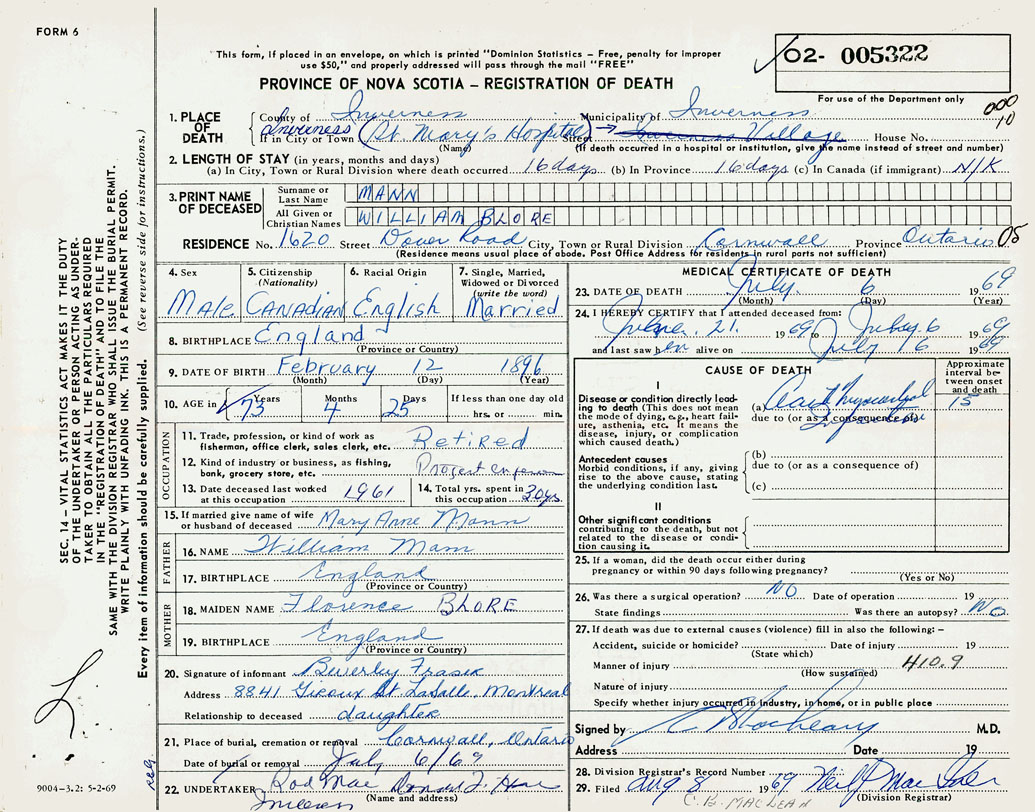 FORM 6
This form, if placed in an envelope, on which is printed "Dominion Statistics – Free, penalty for improper
use $50," and properly addressed will pass through the mail "FREE"
PROVINCE OF NOVA SCOTIA – REGISTRATION OF DEATH
02- 005322
For use of the Department only
000
10
1. PLACE OF DEATH
County of Inverness Municipality of Inverness
Inverness (St. Mary's Hospital) → Inverness Village
If in City or Town (Name) Street House No.
(If death occurred in a hospital or institution, give the name instead of street and number)
2. LENGTH OF STAY (in years, months and days)
(a) In City, Town or Rural Division where death occurred 16 days (b) In Province 16 days (c) In Canada (if immigrant) N/K
3. PRINT NAME OF DECEASED
Surname or Last Name MANN
All Given or Christian Names WILLIAM BLORE
RESIDENCE No. 1620 Street Dover Road City, Town or Rural Division Cornwall Province Ontario 05
(Residence means usual place of abode. Post Office Address for residents in rural parts not sufficient)
4. Sex Male
5. Citizenship (Nationality) CANADIAN
6. Racial Origin English
7. Single, Married, Widowed or Divorced (write the word) Married
8. BIRTHPLACE England
(Province or Country)
9. DATE OF BIRTH February 12 1896
(Month) (Day) (Year)
10. AGE in Years 73 Months 4 Days 25 If less than one day old
hrs. or min.
OCCUPATION
11. Trade, profession, or kind of work as fisherman, office clerk, sales clerk, etc. Retired
12. Kind of industry or business, as fishing, bank, grocery store, etc. Project
13. Date deceased last worked at this occupation 1961
14. Total yrs. spent in this occupation 30 yrs
15. If married give name of wife or husband of deceased Mary Anne Mann
FATHER
16. NAME William Mann
17. BIRTHPLACE England
(Province or Country)
MOTHER
18. MAIDEN NAME Florence BLORE
19. BIRTHPLACE England
(Province or Country)
20. Signature of informant Beverley
Address 8841 Giroux St LaSalle, Montreal
Relationship to deceased daughter
21. Place of burial, cremation or removal Cornwall, Ontario
Date of burial or removal July 6/69
22. UNDERTAKER Rod Mac
(Name and address)
MEDICAL CERTIFICATE OF DEATH
23. DATE OF DEATH July 6 1969
(Month) (Day) (Year)
24. I HEREBY CERTIFY that I attended deceased from:
21 1969 to July 6 1969
and last saw h alive on July 6 1969
CAUSE OF DEATH
Approximate interval between onset and death
I
Disease or condition directly leading to death (This does not mean the mode of dying, e.g., heart failure, asthenia, etc. It means the disease, injury, or complication which caused death.)
(a) 15
due to (or as a consequence of)
Antecedent causes
Morbid conditions, if any, giving rise to the above cause, stating the underlying condition last.
(b)
due to (or as a consequence of)
(c)
II
Other significant conditions
contributing to the death, but not related to the disease or condition causing it.
25. If a woman, did the death occur either during
pregnancy or within 90 days following pregnancy?
(Yes or No)
26. Was there a surgical operation? NO Date of operation 19
State findings Was there an autopsy? NO
27. If death was due to external causes (violence) fill in also the following: –
Accident, suicide or homicide? Date of injury 19
(State which)
Manner of injury 410.9
(How sustained)
Nature of injury
Specify whether injury occurred in industry, in home, or in public place
Signed by M.D.
Address Date 19
28. Division Registrar's Record Number
29. Filed Aug 8 1969
C. B. MACLEAN (Division Registrar)
SEC. 14 – VITAL STATISTICS ACT MAKES IT THE DUTY
OF THE UNDERTAKER OR PERSON ACTING AS UNDER-
TAKER TO OBTAIN ALL THE PARTICULARS REQUIRED
IN THE "REGISTRATION OF DEATH" AND TO FILE THE
SAME WITH THE DIVISION REGISTRAR WHO SHALL ISSUE THE BURIAL PERMIT.
WRITE PLAINLY WITH UNFADING INK. THIS IS A PERMANENT RECORD.
Every item of information should be carefully supplied. (See reverse side for instructions.)
9004-3.2: 5-2-69